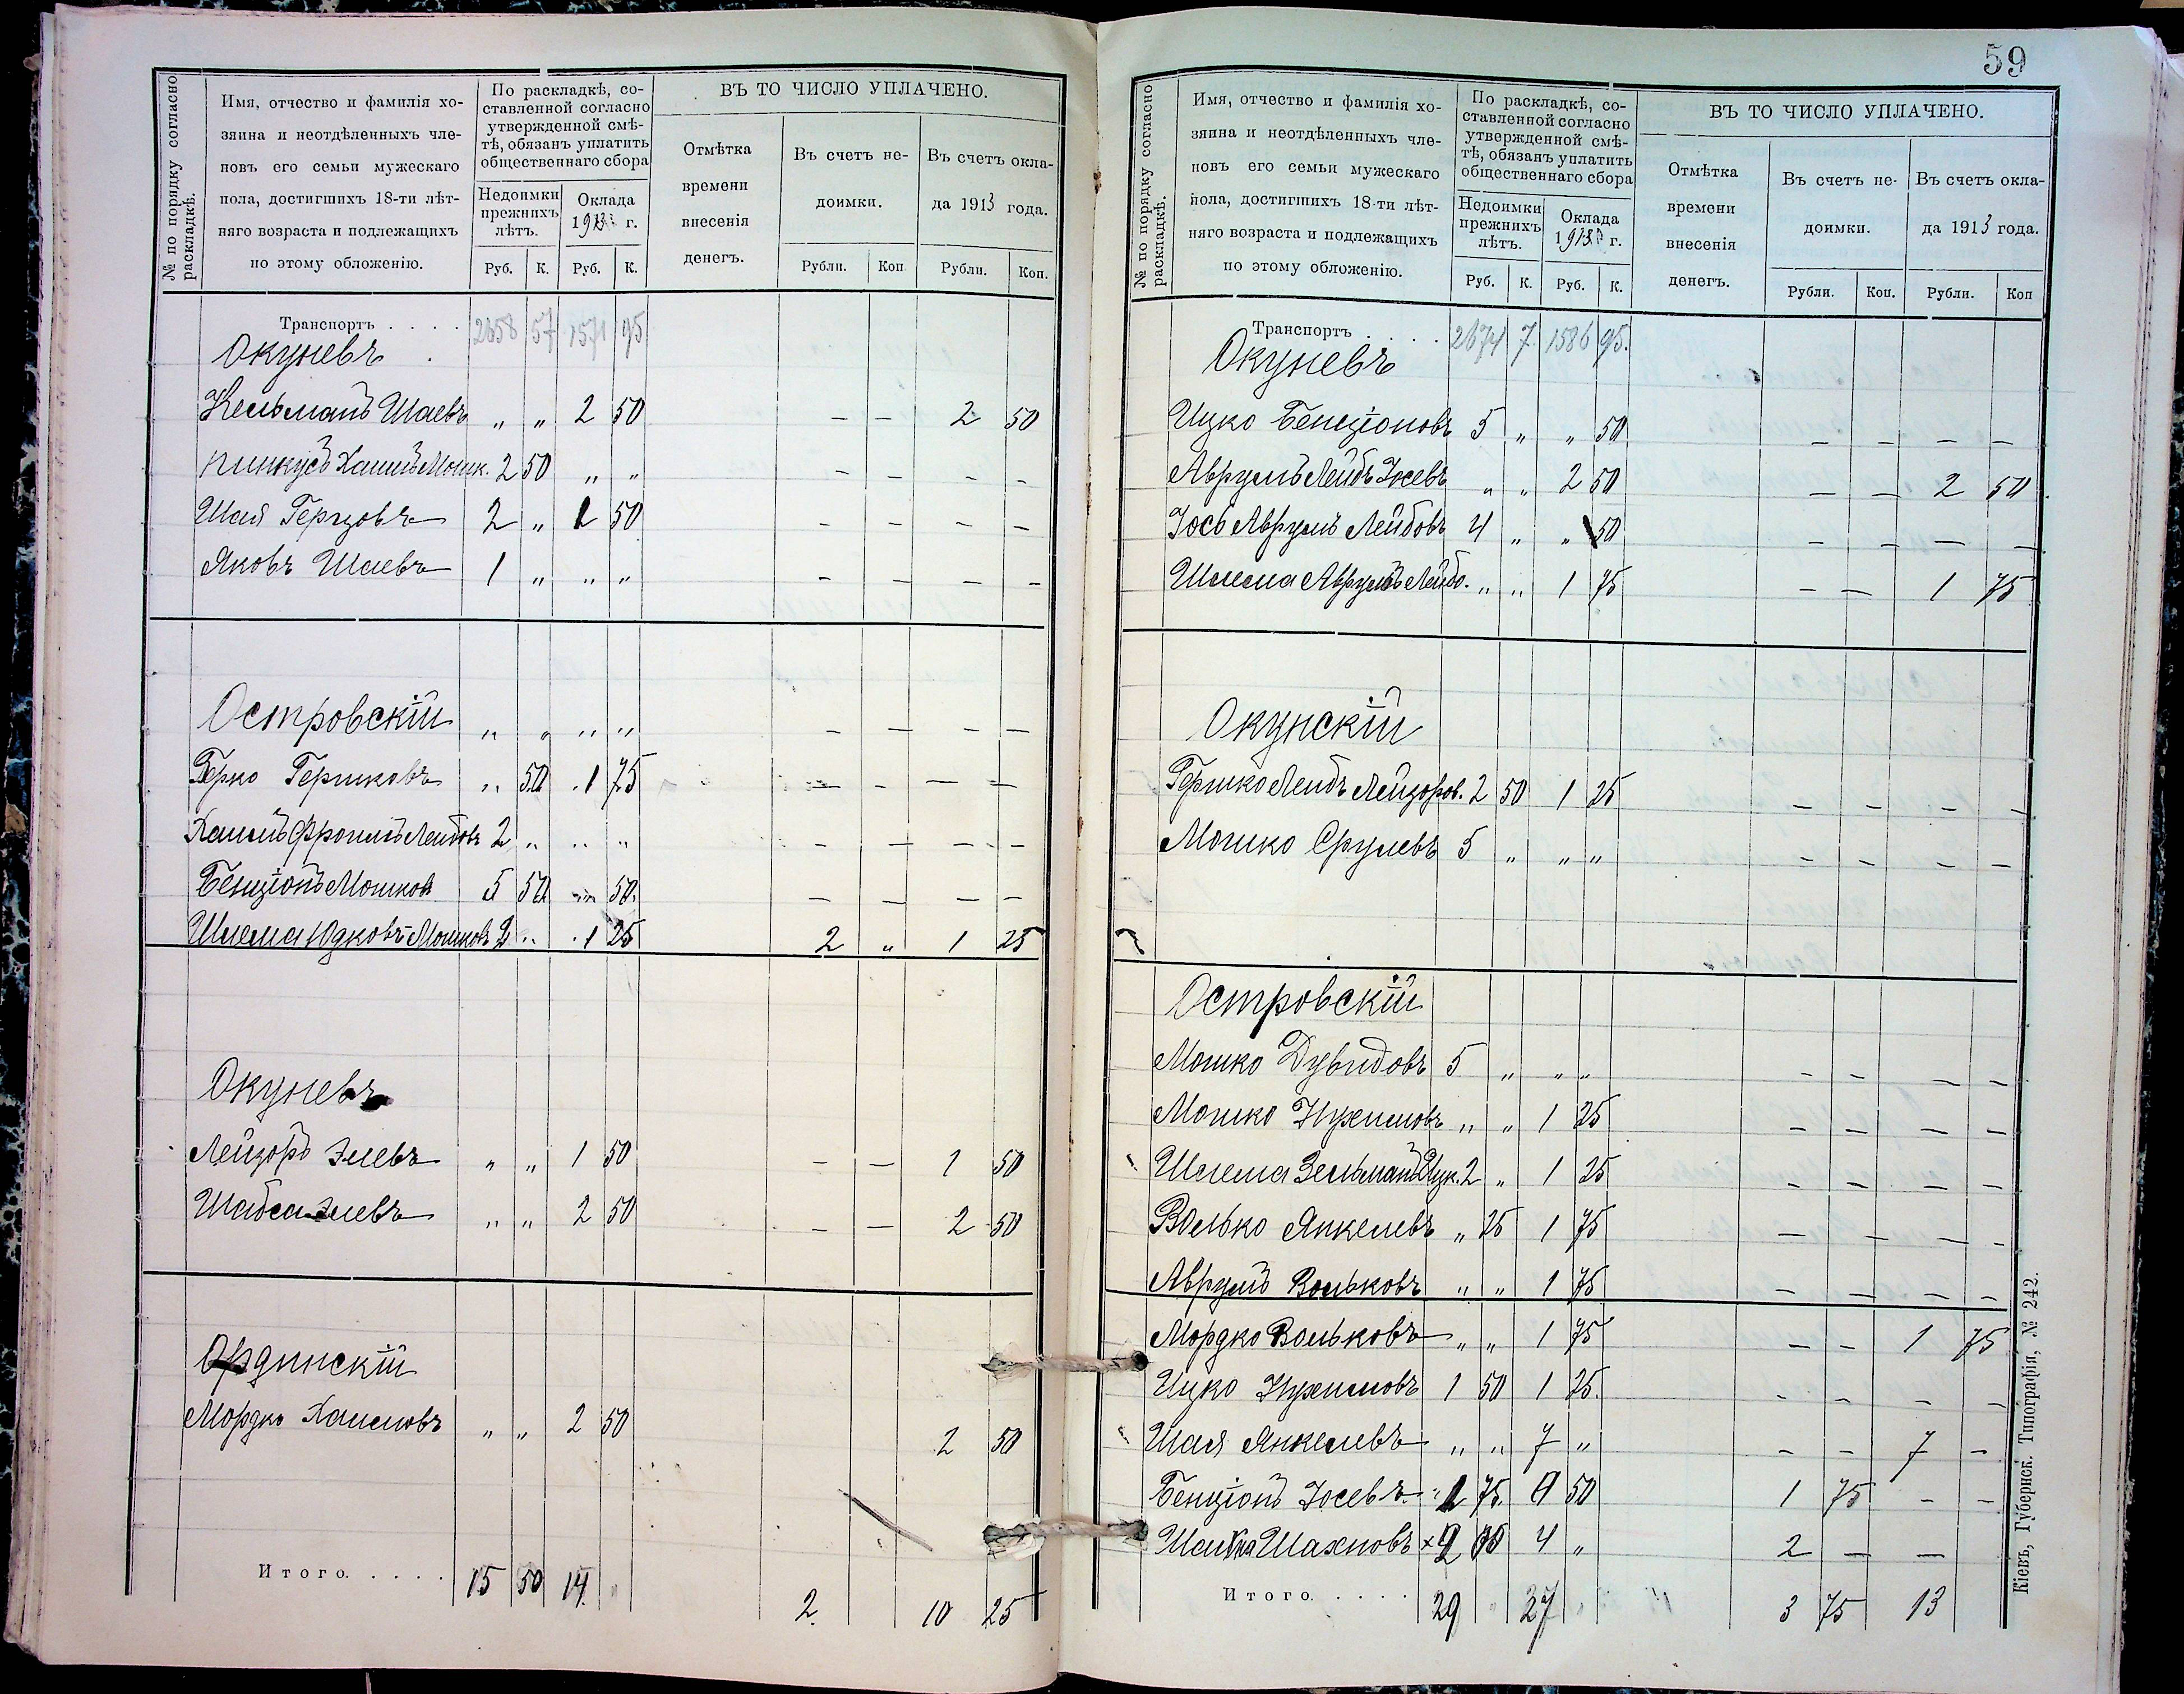 № по порядку согласно раскладкѣ.
Имя, отчество и фамилія хо-
зяина и неотдѣленныхъ чле-
новъ его семьи мужескаго
пола, достигшихъ 18-ти лѣт-
няго возраста и подлежащихъ
по этому обложенію.
По раскладкѣ, со-
ставленной согласно
утвержденной смѣ-
тѣ, обязанъ уплатить
общественнаго сбора
Недоимки
прежнихъ
лѣтъ.
Оклада
1913 г.
Руб. К. Руб. К.
ВЪ ТО ЧИСЛО УПЛАЧЕНО.
Отмѣтка
времени
внесенія
денегъ.
Въ счетъ не-
доимки.
Въ счетъ окла-
да 1913 года.
Рубли. Коп Рубли. Коп.
Транспортъ . . . . 2658 57 1571 95
Окуневъ
Кельманъ Шаевъ „ „ 2 50 — — 2 50
Пинкусъ Хаимъ Мошк. 2 50 „ „ — — — —
Шая Герцовъ 2 „ 1 50 — — — —
Яковъ Шаевъ 1 „ „ „ — — — —
Островскій „ „ „ „ — — — —
Берко Гершковъ „ 50 1 75 — — — —
Хаимъ Фроимъ Лейбовъ 2 „ „ „ — — — —
Бенціонъ Мошков 5 50 „ 50 — — — —
Шлема Юдковъ Мошковъ 2 „ 1 25 2 „ 1 25
Окуневъ
Лейзоръ Элевъ „ „ 1 50 — — 1 50
Шабса Элевъ „ „ 2 50 — — 2 50
Ординскій
Мордко Хаимовъ „ „ 2 50 2 50
Итого. . . . . 15 50 14 „ 2. 10 25
59
№ по порядку согласно раскладкѣ.
Имя, отчество и фамилія хо-
зяина и неотдѣленныхъ чле-
новъ его семьи мужескаго
пола, достигшихъ 18-ти лѣт-
няго возраста и подлежащихъ
по этому обложенію.
По раскладкѣ, со-
ставленной согласно
утвержденной смѣ-
тѣ, обязанъ уплатить
общественнаго сбора
Недоимки
прежнихъ
лѣтъ.
Оклада
1913 г.
Руб. К. Руб. К.
ВЪ ТО ЧИСЛО УПЛАЧЕНО.
Отмѣтка
времени
внесенія
денегъ.
Въ счетъ не-
доимки.
Въ счетъ окла-
да 1913 года.
Рубли. Коп. Рубли. Коп
Транспортъ . . . . 2674 7 1586 95.
Окуневъ
Ицко Бенціоновъ 5 „ „ 50 — — — —
Аврумъ Лейбъ Іосевъ „ „ 2 50 — — 2 50
Іось Аврумъ Лейбовъ 4 „ „ 50 — — — —
Шлема Аврумъ Лейбо. „ „ 1 75 — — 1 75
Окунскій
Гершко Лейбъ Лейзоров. 2 50 1 25 — — — —
Мошко Срулевъ 5 „ „ „ — — — —
Островскій
Мошко Дувидовъ 5 „ „ „ — — — —
Мошко Нухимовъ „ „ 1 25 — — — —
Шлема Зельманъ Ицк. 2 „ 1 25 — — — —
Волько Янкелевъ „ 25 1 75 — — — —
Аврумъ Вольковъ „ „ 1 75 — — — —
Мордко Вольковъ „ „ 1 75 — — 1 75
Ицко Нухимовъ 1 50 1 25. — — — —
Шая Янкелевъ „ „ 7 „ — — 7 —
Бенціонъ Іосевъ 1 75 50 1 75 — —
Шахновъ 4 „ 2 — —
Итого. . . . . 29 „ 27 „ 3 75 13
Кіевъ, Губернск. Типографія, № 242.